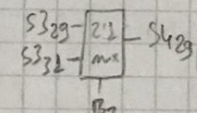 S3₂₉ 2:1 S4₂₉
S3₃₁ mx
B₂